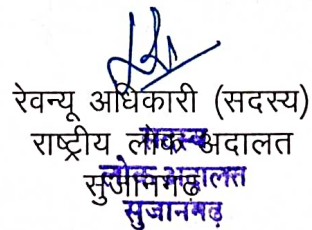 रेवन्यू अधिकारी (सदस्य)
राष्ट्रीय लोक अदालत
सदस्य
सुजानगढ़
लोक अदालत
सुजानगढ़